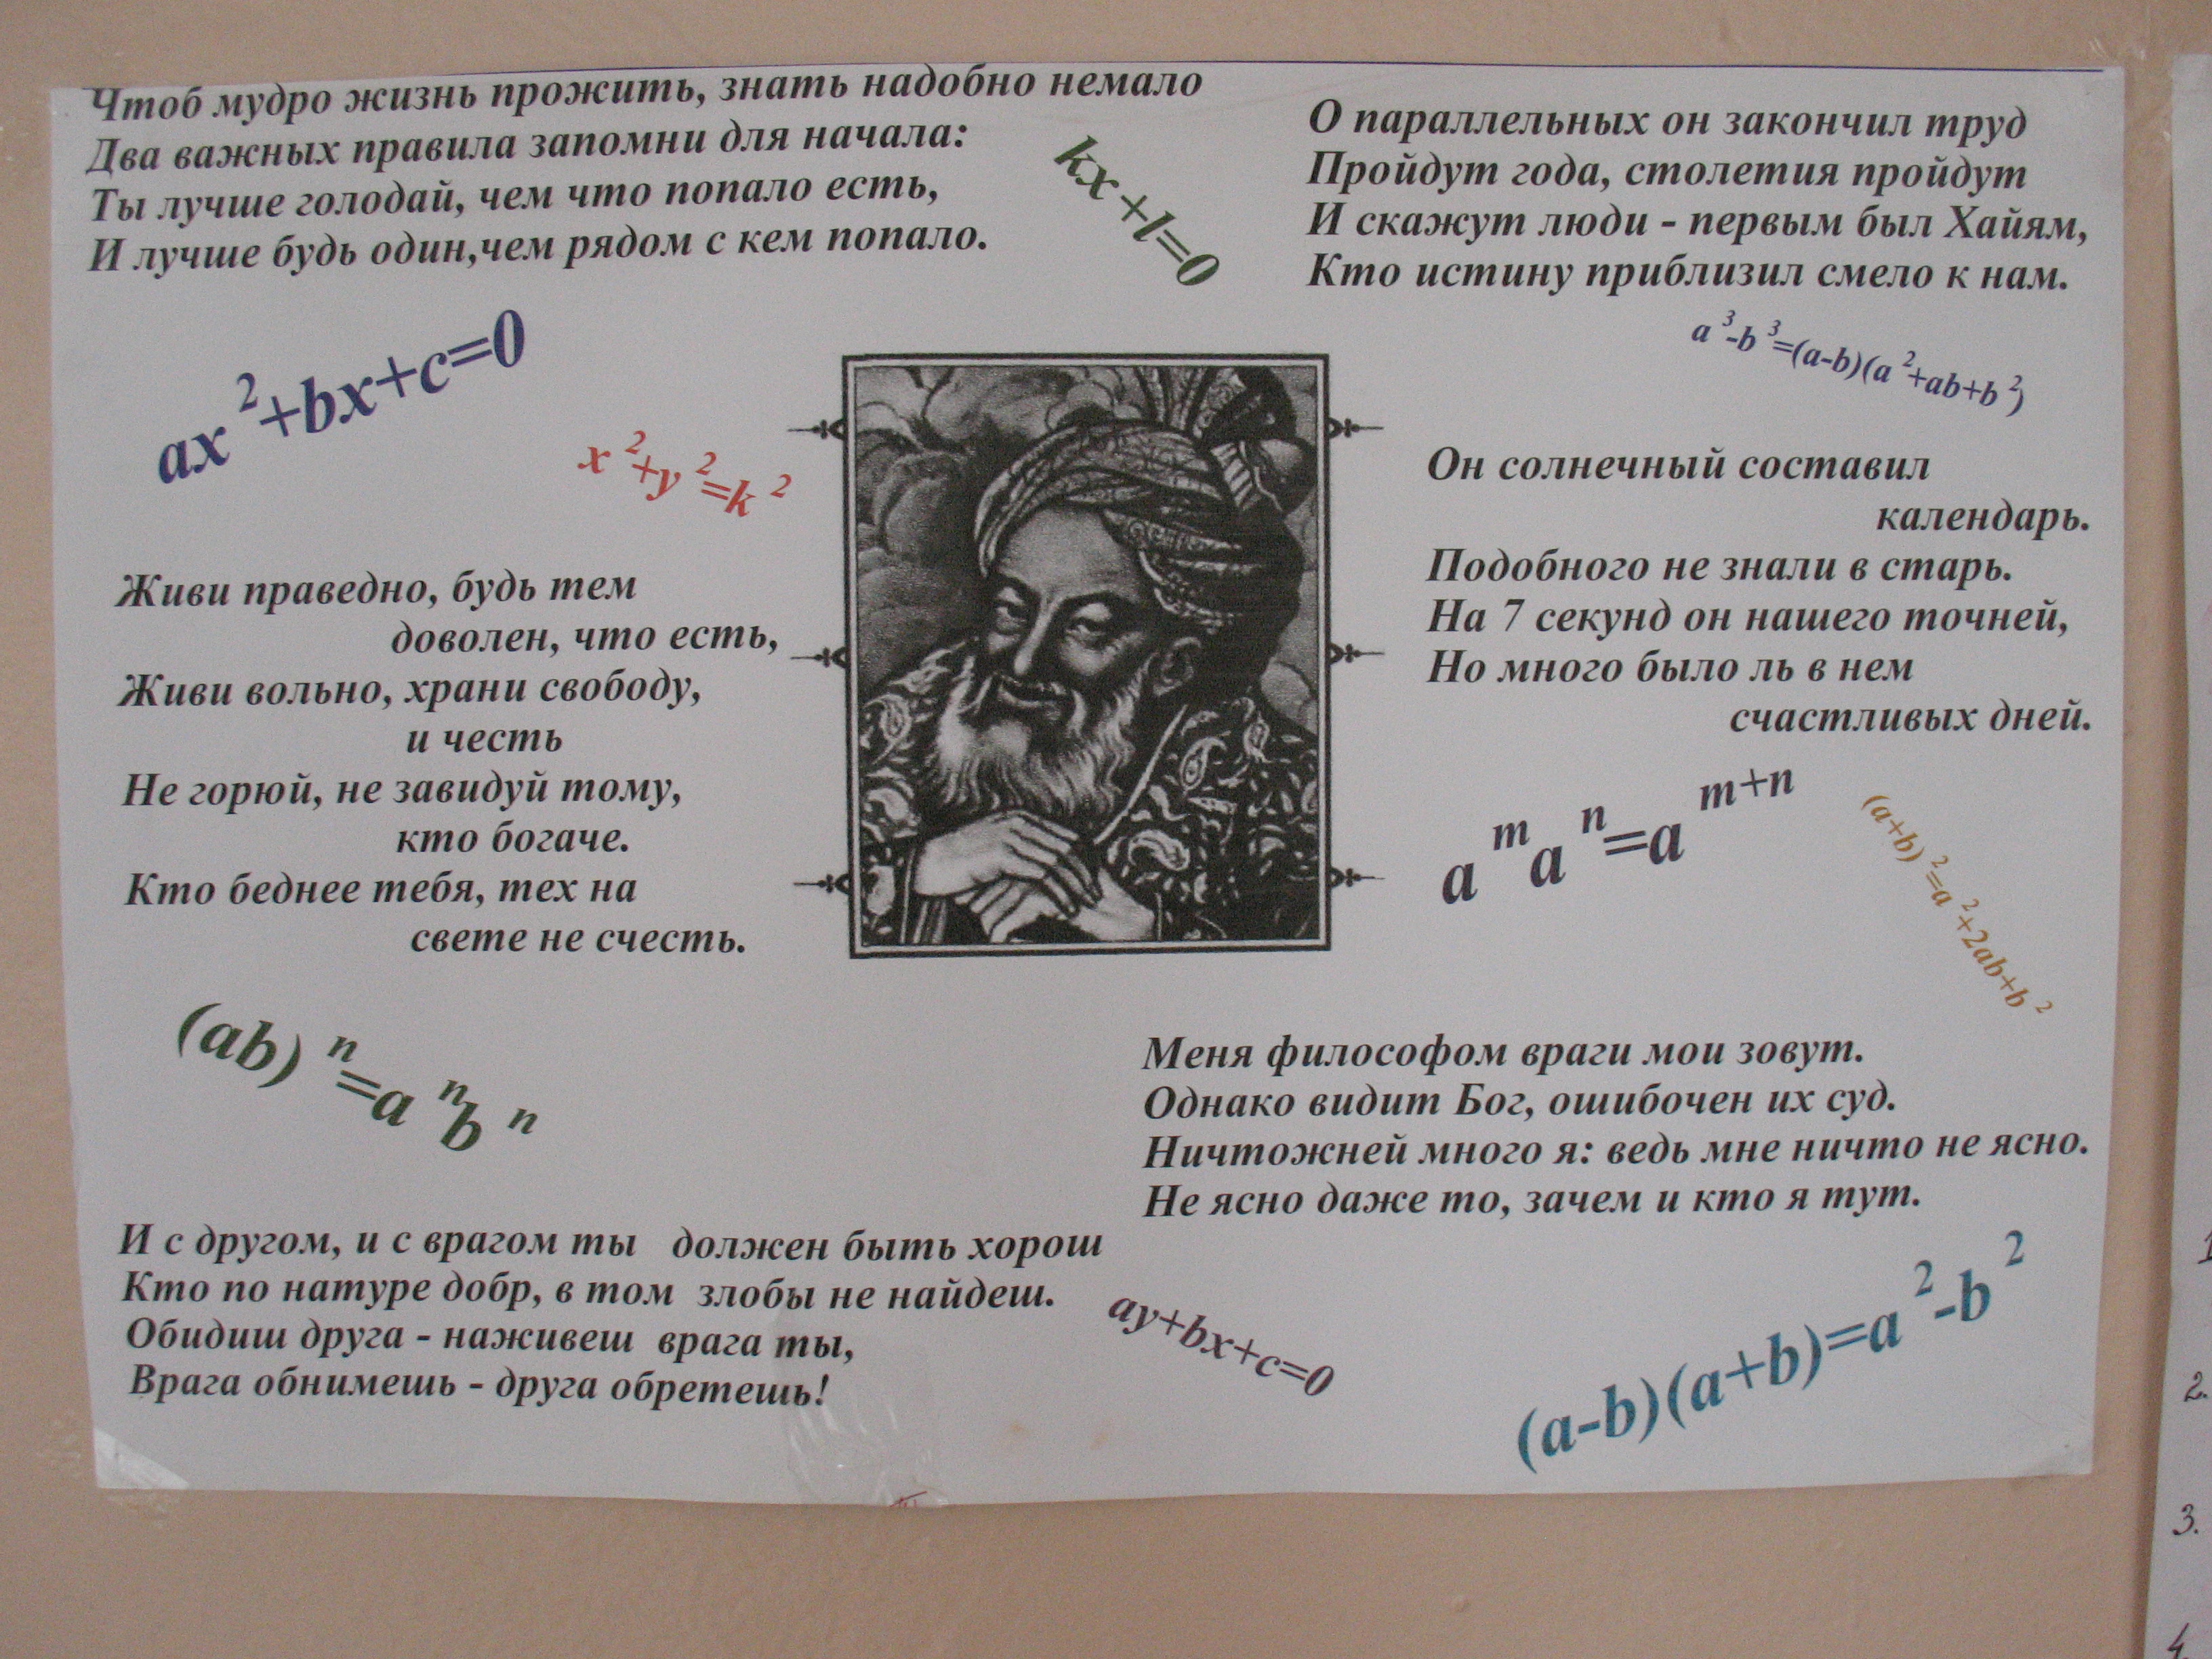 Чтоб мудро жизнь прожить, знать надобно немало
Два важных правила запомни для начала:
Ты лучше голодай, чем что попало есть,
И лучше будь один,чем рядом с кем попало.
kx+l=0
О параллельных он закончил труд
Пройдут года, столетия пройдут
И скажут люди - первым был Хайям,
Кто истину приблизил смело к нам.
ax²+bx+c=0
x²+y²=k²
a³-b³=(a-b)(a²+ab+b²)
Живи праведно, будь тем
доволен, что есть,
Живи вольно, храни свободу,
и честь
Не горюй, не завидуй тому,
кто богаче.
Кто беднее тебя, тех на
свете не счесть.
Он солнечный составил
календарь.
Подобного не знали в старь.
На 7 секунд он нашего точней,
Но много было ль в нем
счастливых дней.
aᵐaⁿ=aᵐ⁺ⁿ
(a+b)²=a²+2ab+b²
(ab)ⁿ=aⁿbⁿ
Меня философом враги мои зовут.
Однако видит Бог, ошибочен их суд.
Ничтожней много я: ведь мне ничто не ясно.
Не ясно даже то, зачем и кто я тут.
И с другом, и с врагом ты должен быть хорош
Кто по натуре добр, в том злобы не найдеш.
Обидиш друга - наживеш врага ты,
Врага обнимешь - друга обретешь!
ay+bx+c=0
(a-b)(a+b)=a²-b²
1
2.
3.
4.